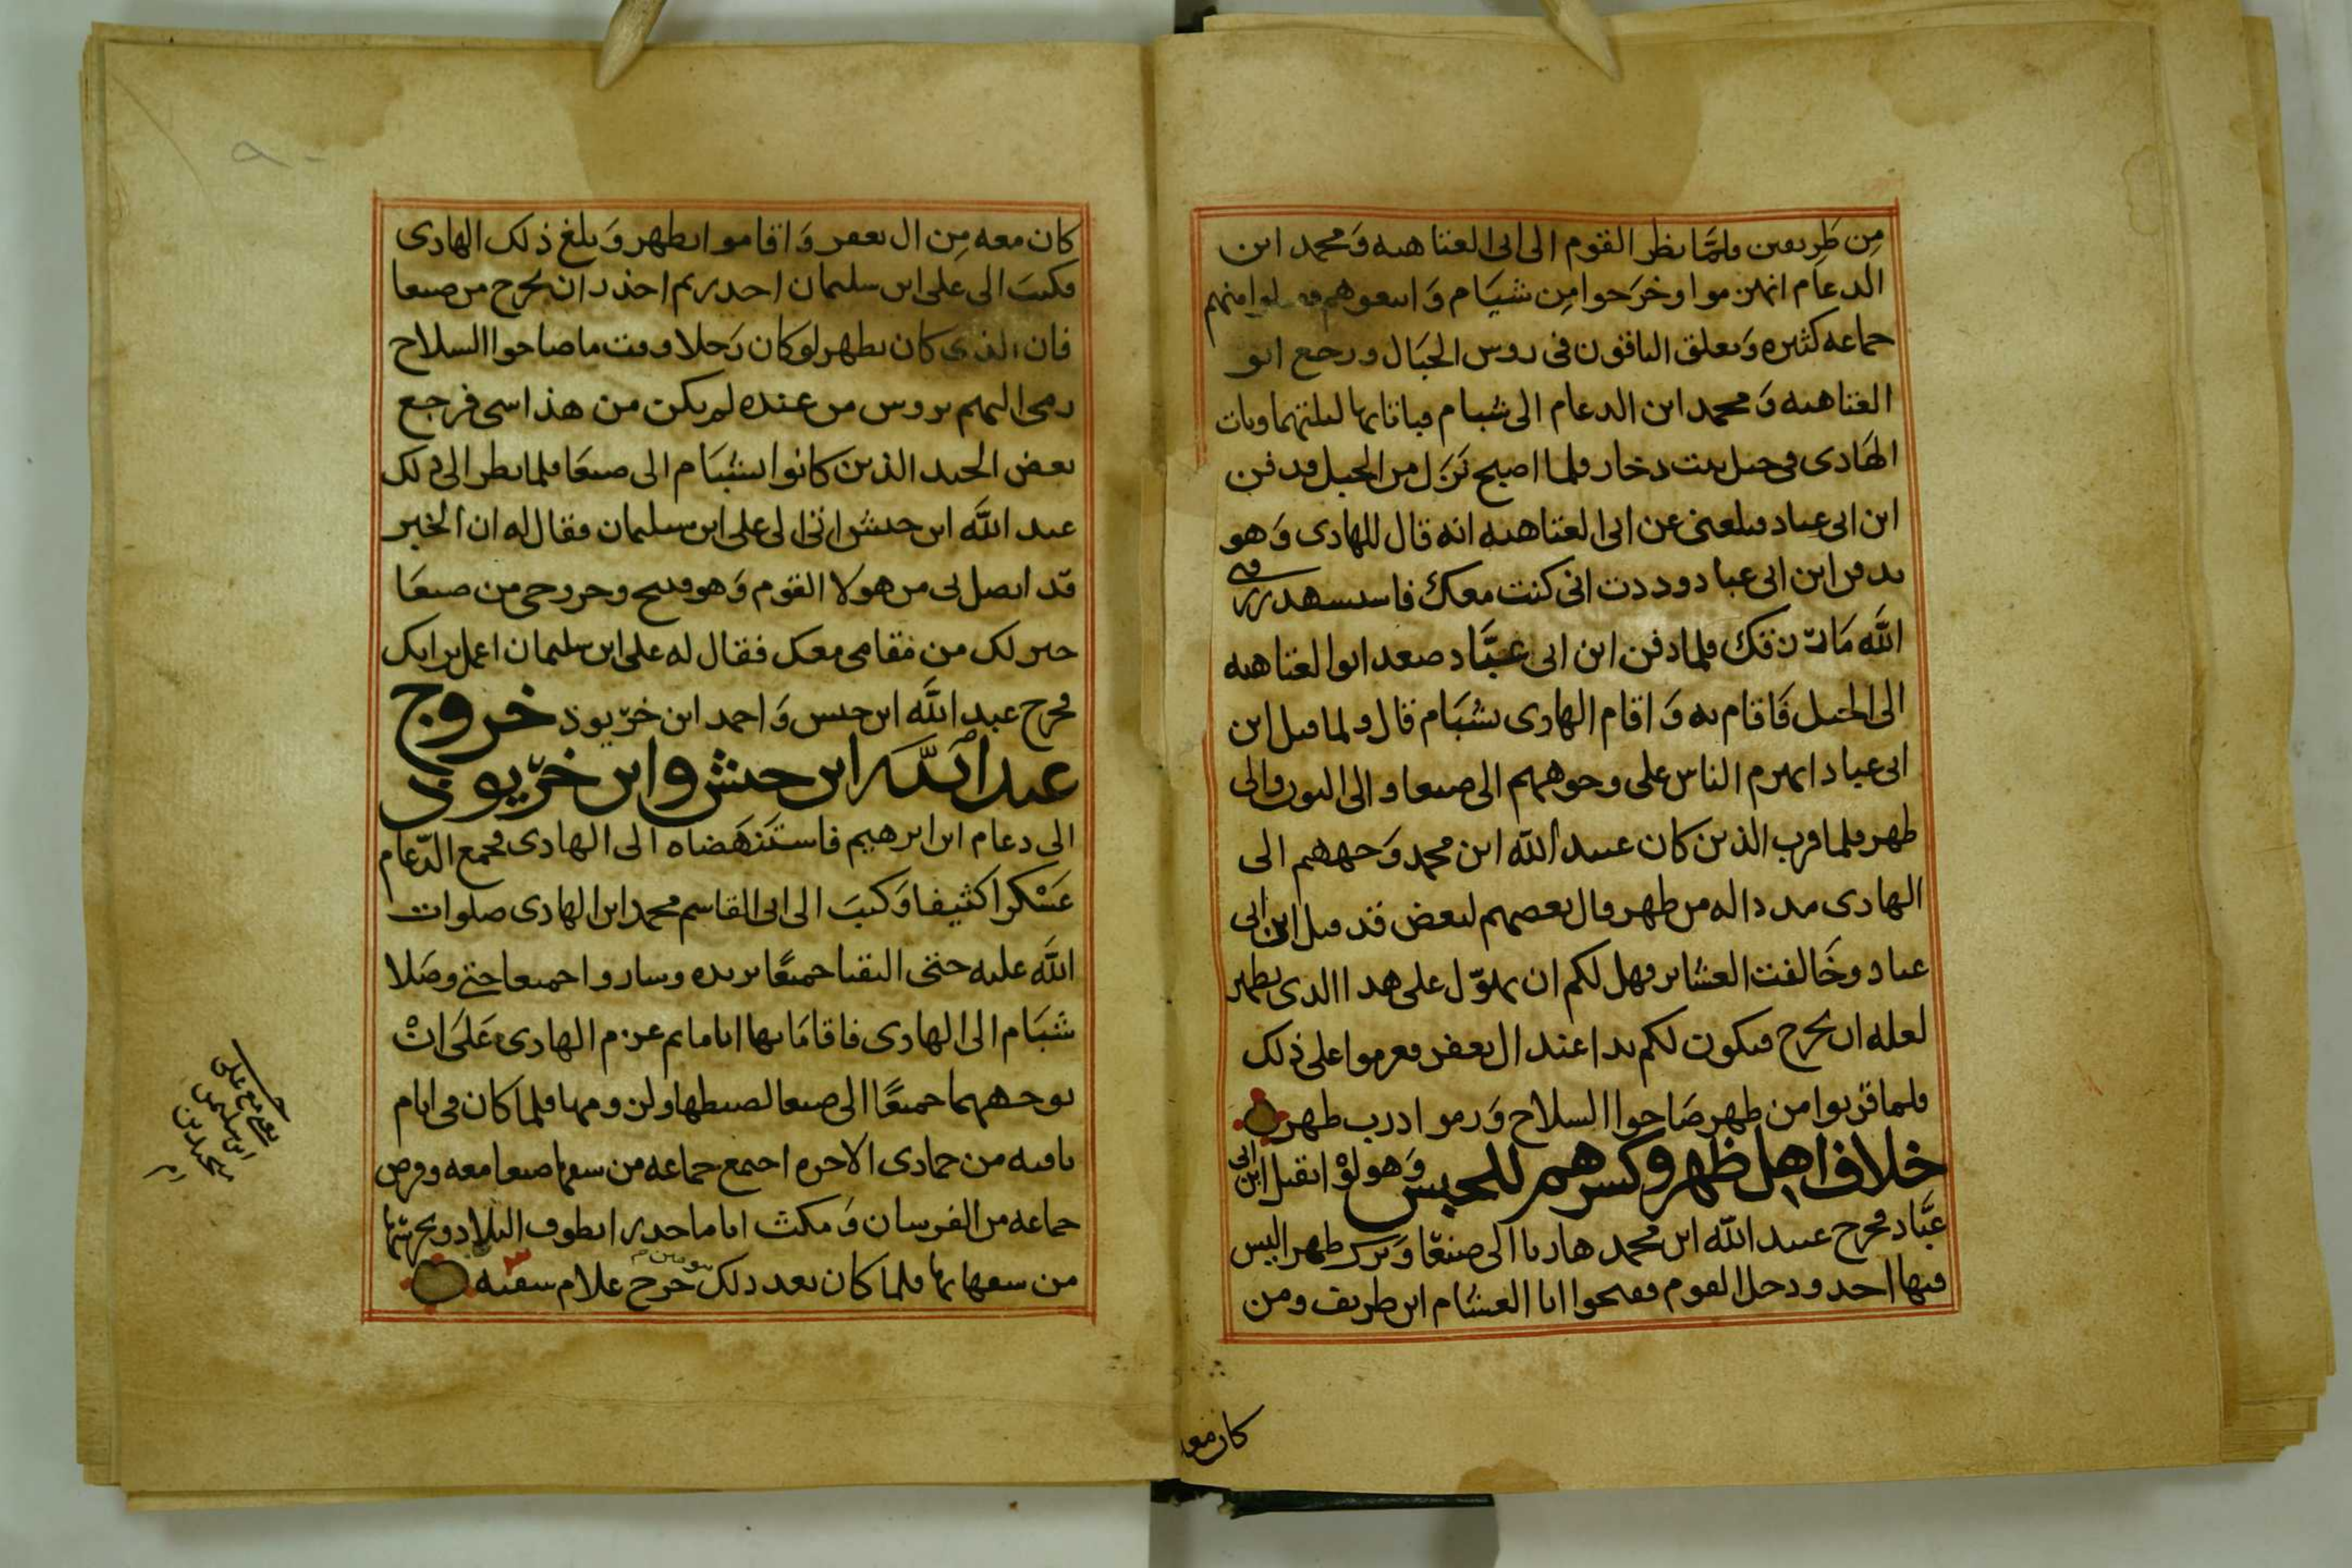 من طريقين فلما نظر القوم الى ابى العتاهيه وَمحمد ابن
الدعام انهزموا وخرَجوا مِن شبَام وَاتبعوهم منهم
جماعه كثيره وَتعلق الباقون فى روس الجبَال ورجع ابو
العتاهيه وَمحمد ابن الدعام الى شبام فباتا بها ليلتهما وبات
الهَادى فى جبل بيت ذخار فلما اصبح نَزَل من الجبل فدفن
ابن ابى عباد فبلغنى عن ابى العتاهيه انه قال للهادى وَهو
يدفن ابن ابى عباد وددت انى كنت معك
الله فلما دفن ابن ابى عبَّاد صعد ابو العتاهيه
الى الجبل فَاقام به وَاقام الهادى بشبَام قال ولما قتل ابن
ابى عباد انهزم الناس على وجوههم الى صنعا والى البون والى
ظهر فلما قرب الذين كان عبد الله ابن محمد وَجههم الى
الهادى مددا له من ظهر قال بعضهم لبعض قد قتل ابن ابى
عباد وخَالفت العشاير فهل لكم ان على هذا الذى بظهر
لعله ان يخرج فيكون لكم يدا عند ال يعفر فعزموا على ذلك
فلما قربوا من ظهر صَاحوا السلاح وَرموا درب ظهر
خلاف اهل ظهر وكسرهم للحبس وَهو لوْ ابن ابى
عبَّاد فخرج عبد الله ابن محمد هاربا الى صنعَا وَترك ظهر اليس
فيها احد ودخل القوم ففتحوا ابا العشام ابن طريف ومن
كان معه
كان معه مِن ال يعفر وَاقاموا بظهر وَبلغ ذلك الهادى
فكتبَ الى على ابن سليمان احذر ثم احذر ان يخرج من صنعا
فان الذى كان بظهر لو كان رَجلا وقت ما صاحوا السلاح
رمى اليهم بروس من عنده لم يكن من هذا شى فرجع
بعض الجند الذين كانوا بشبَام الى صنعَا فلما نظر الى ذلك
عبد الله ابن حبش اتى الى على ابن سليمان فقال له ان الخبر
قد اتصل بى من هولا القوم وَهو قبيح وخروجى من صنعَا
خير لك من مقامى معك فقال له على ابن سليمان اعمل برايك
فخرج عبد الله ابن حبش وَاحمد ابن خرّيوذ خروج
عبد الله ابن حبش وابن خرّيوذ
الى دعام ابن ابرهيم فاستَنهَضاه الى الهادى فجمع الدّعام
عَسْكرا كثيفا وَكتبَ الى ابى القاسم محمد ابن الهادى صلوات
الله عليه حتى التقيا جميعًا بريده وساروا جميعا حتى وصَلا
شبَام الى الهادى فاقامَا بها اياما ثم عزم الهادى عَلَى انْ
يوجههما جميعًا الى صنعا لضبطها ولزومها فلما كان فى ايام
باقيه من جمادى الاخره اجتمع جماعه من سفها صنعا معه وفرض
جماعه من الفرسان وَمكث اياما حدرا يطوف البلاد ويحرسها
من سفهايها فلما كان بعد ذلك خرج غلام سفيه